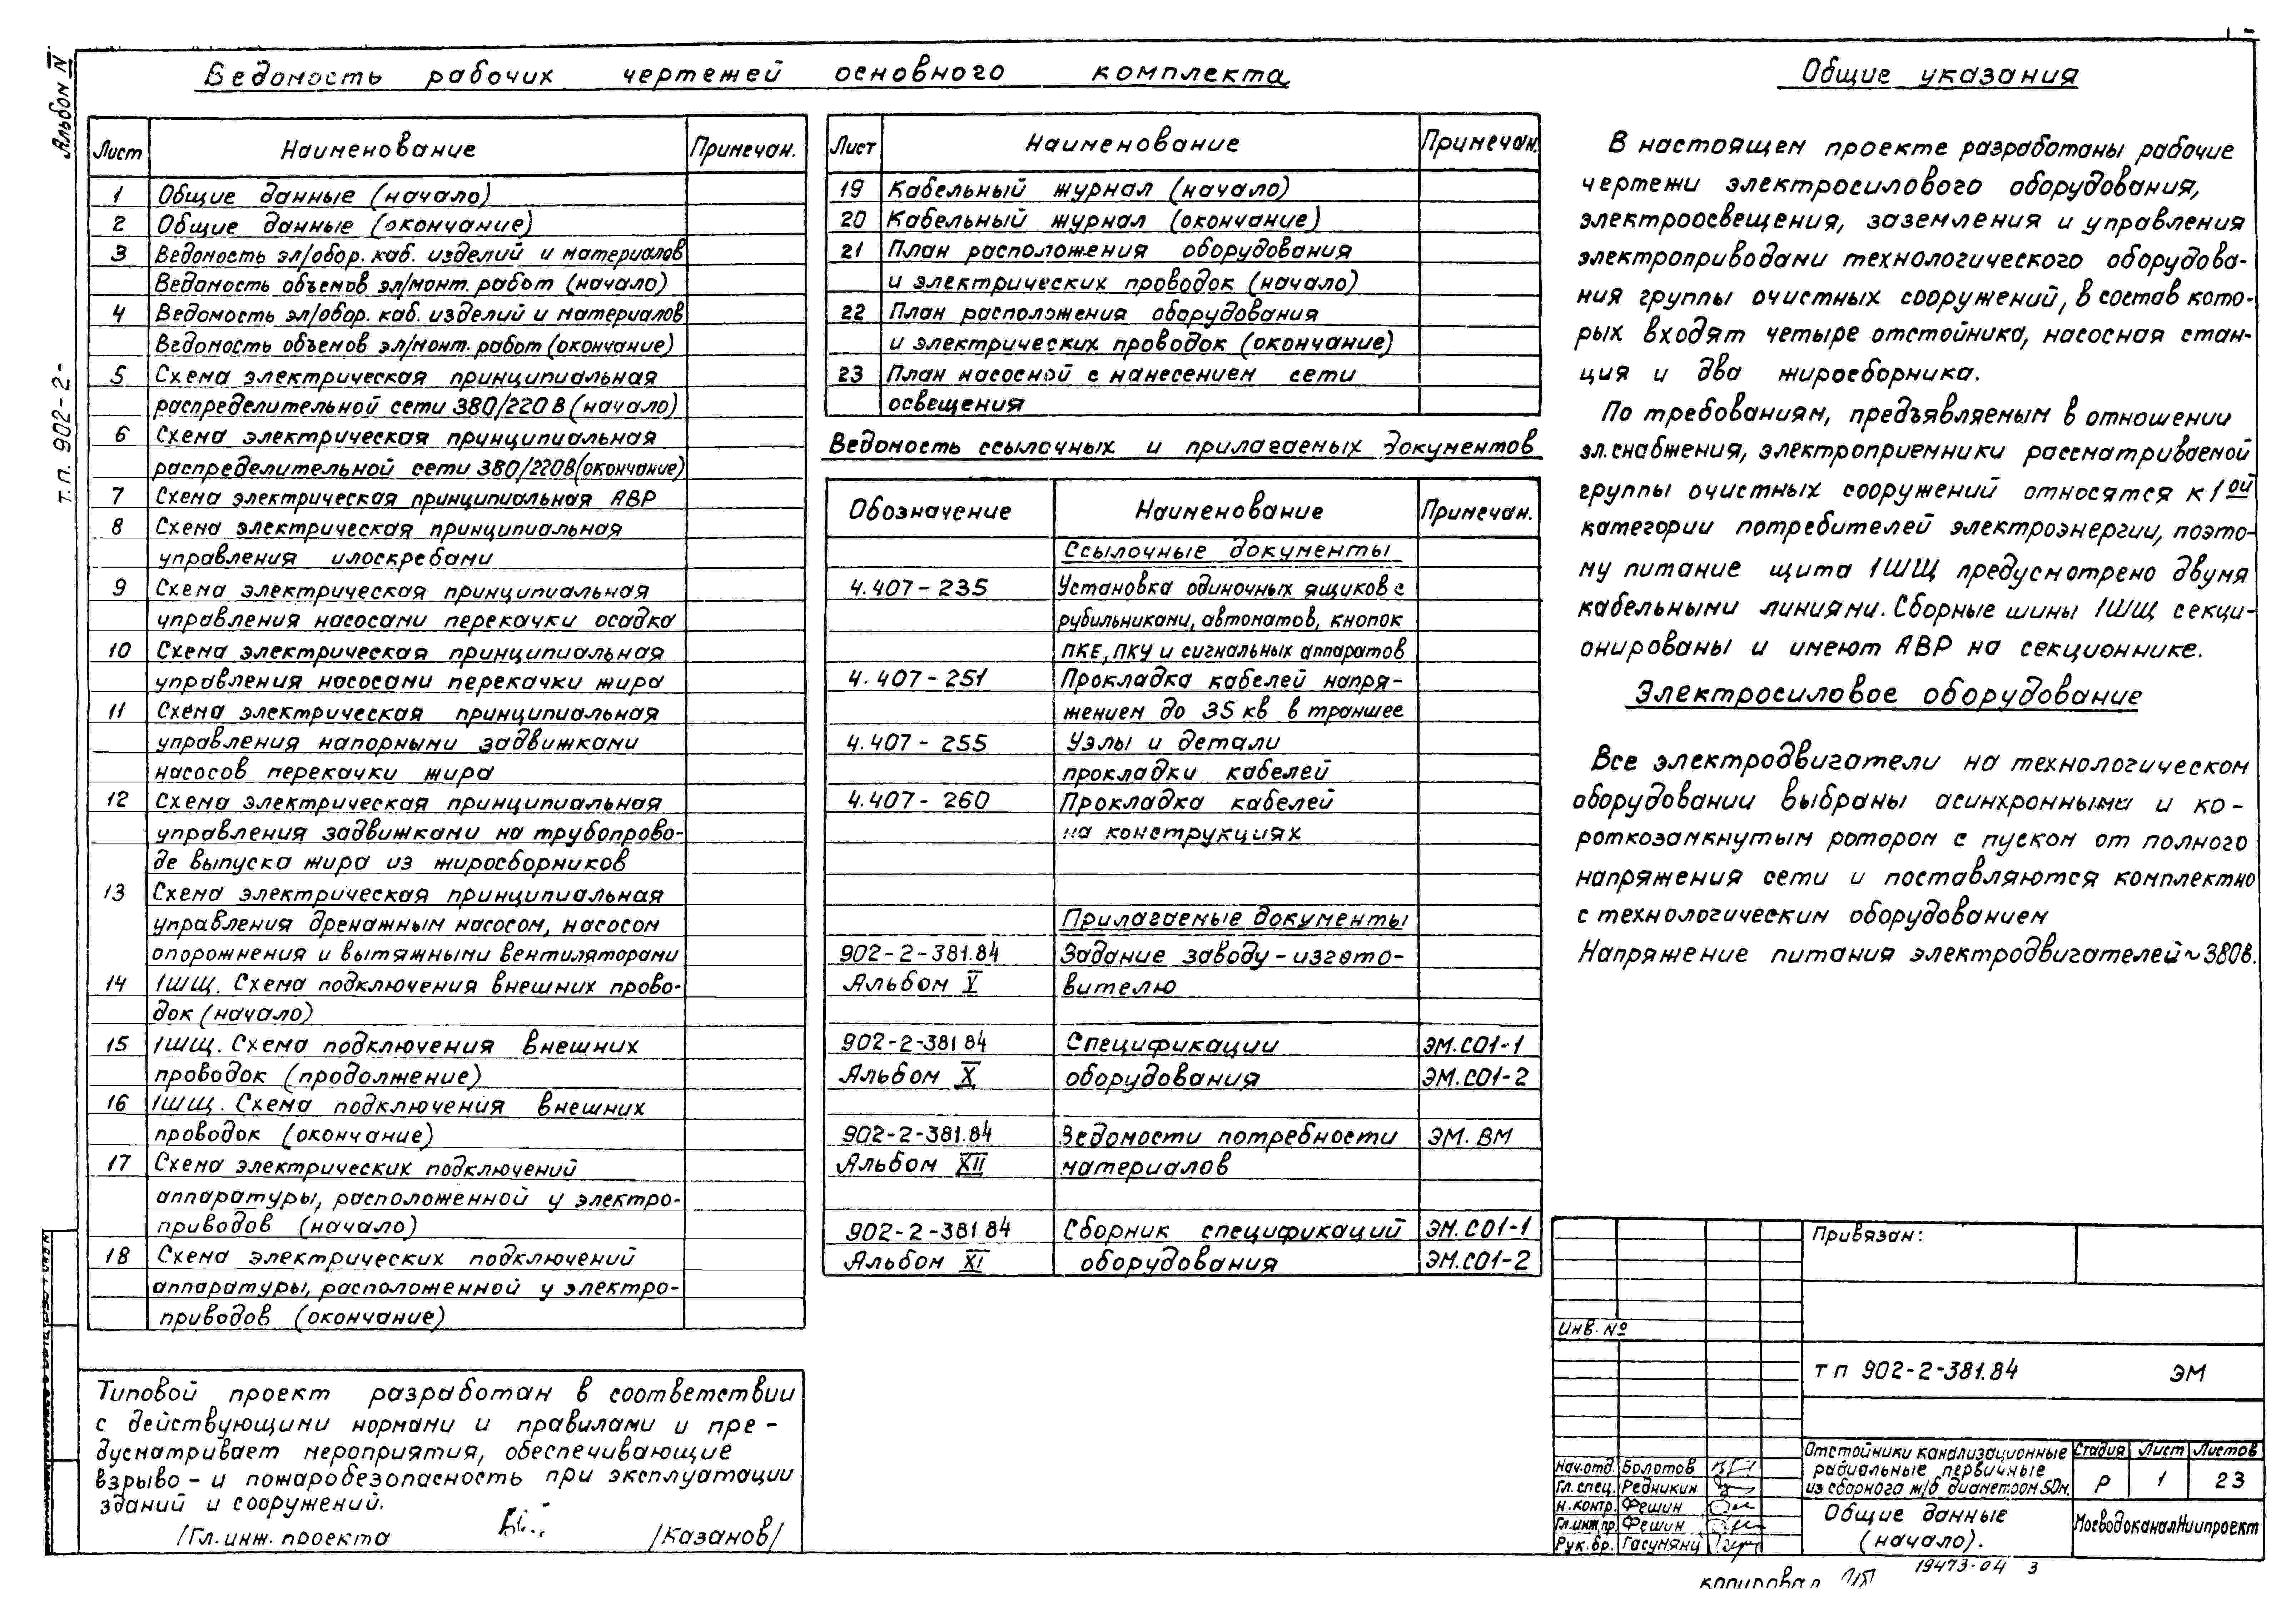 Альбом IV
т.п. 902-2-
Ведомость рабочих чертежей основного комплекта
Лист Наименование Примечан.
1 Общие данные (начало)
2 Общие данные (окончание)
3 Ведомость эл/обор. каб. изделий и материалов
Ведомость объемов эл/монт. работ (начало)
4 Ведомость эл/обор. каб. изделий и материалов
Ведомость объемов эл/монт. работ (окончание)
5 Схема электрическая принципиальная
распределительной сети 380/220 В (начало)
6 Схема электрическая принципиальная
распределительной сети 380/220В (окончание)
7 Схема электрическая принципиальная АВР
8 Схема электрическая принципиальная
управления илоскребами
9 Схема электрическая принципиальная
управления насосами перекачки осадка
10 Схема электрическая принципиальная
управления насосами перекачки жира
11 Схема электрическая принципиальная
управления напорными задвижками
насосов перекачки жира
12 Схема электрическая принципиальная
управления задвижками на трубопрово-
де выпуска жира из жиросборников
13 Схема электрическая принципиальная
управления дренажным насосом, насосом
опорожнения и вытяжными вентиляторами
14 1ШЩ. Схема подключения внешних прово-
док (начало)
15 1ШЩ. Схема подключения внешних
проводок (продолжение)
16 1ШЩ. Схема подключения внешних
проводок (окончание)
17 Схема электрических подключений
аппаратуры, расположенной у электро-
приводов (начало)
18 Схема электрических подключений
аппаратуры, расположенной у электро-
приводов (окончание)
Типовой проект разработан в соответствии
с действующими нормами и правилами и пре-
дусматривает мероприятия, обеспечивающие
взрыво - и пожаробезопасность при эксплуатации
зданий и сооружений.
/Гл. инж. проекта /Казанов/
Лист Наименование Примечан.
19 Кабельный журнал (начало)
20 Кабельный журнал (окончание)
21 План расположения оборудования
и электрических проводок (начало)
22 План расположения оборудования
и электрических проводок (окончание)
23 План насосной с нанесением сети
освещения
Ведомость ссылочных и прилагаемых документов
Обозначение Наименование Примечан.
Ссылочные документы
4.407-235 Установка одиночных ящиков с
рубильниками, автоматов, кнопок
ПКЕ, ПКУ и сигнальных аппаратов
4.407-251 Прокладка кабелей напря-
жением до 35 кв в траншее
4.407-255 Узлы и детали
прокладки кабелей
4.407-260 Прокладка кабелей
на конструкциях
Прилагаемые документы
902-2-381.84 Задание заводу-изгото-
Альбом V вителю
902-2-381 84 Спецификации ЭМ.СО1-1
Альбом X оборудования ЭМ.СО1-2
902-2-381.84 Ведомости потребности ЭМ. ВМ
Альбом XII материалов
902-2-381.84 Сборник спецификаций ЭМ.СО1-1
Альбом XI оборудования ЭМ.СО1-2
Общие указания
В настоящем проекте разработаны рабочие
чертежи электросилового оборудования,
электроосвещения, заземления и управления
электроприводами технологического оборудова-
ния группы очистных сооружений, в состав кото-
рых входят четыре отстойника, насосная стан-
ция и два жиросборника.
По требованиям, предъявляемым в отношении
эл.снабжения, электроприемники рассматриваемой
группы очистных сооружений относятся к 1ой
категории потребителей электроэнергии, поэто-
му питание щита 1ШЩ предусмотрено двумя
кабельными линиями. Сборные шины 1ШЩ секци-
онированы и имеют АВР на секционнике.
Электросиловое оборудование
Все электродвигатели на технологическом
оборудовании выбраны асинхронными и ко-
роткозамкнутым ротором с пуском от полного
напряжения сети и поставляются комплектно
с технологическим оборудованием
Напряжение питания электродвигателей ~ 380в.
Привязан:
Инв. №
тп 902-2-381.84 ЭМ
Отстойники канализационные
радиальные первичные
из сборного ж/б диаметром 50м.
Стадия Лист Листов
Р 1 23
Нач.отд. Болотов
Гл. спец. Редникин
Н. контр. Фешин
Гл.инж.пр. Фешин
Рук. бр. Гасумянц
Общие данные
(начало).
МосводоканалНиипроект
копировал
19473-04 3